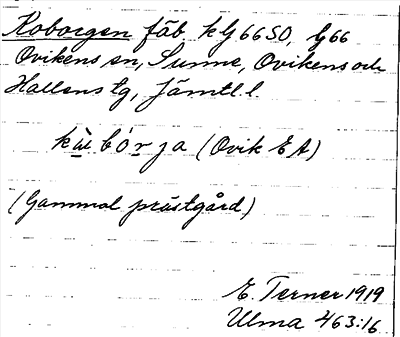 Koborgen fäb kG66SO, G66
Ovikens sn, Sunne, Ovikens och
Hallens tg, Jämtl. l.
(Ovik EA)
(Gammal prästgård)
E. Terner 1919
Ulma 463:16